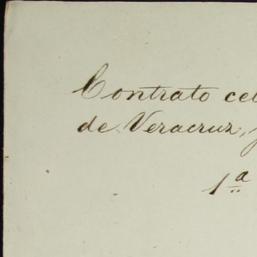 Contrato cel
de Veracruz,
1.ª